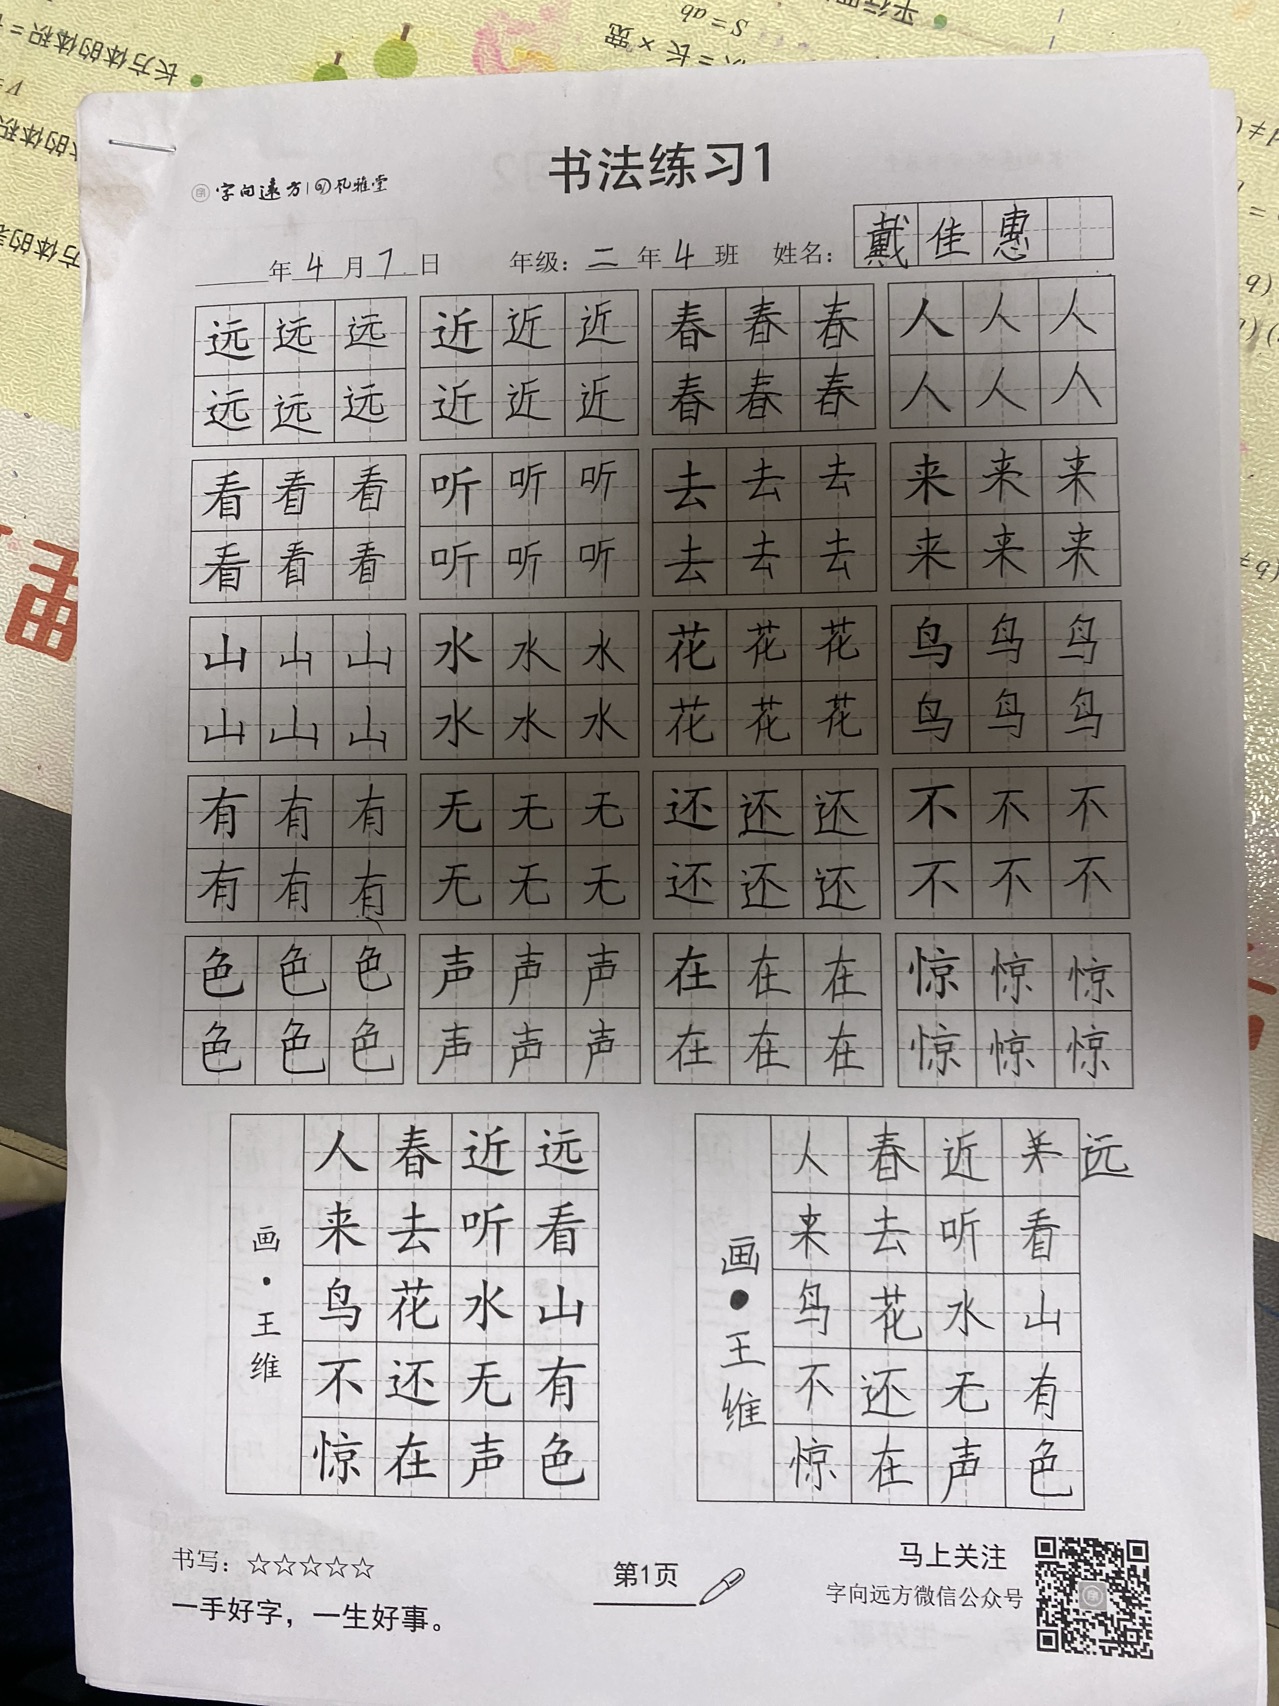 长方体的体积=
S=ab
=长×宽
平行四
书法练习1
字向远方 凡雅堂
年4月7日 年级：二年4班 姓名：戴佳惠
远远远 近近近 春春春 人人人
远远远 近近近 春春春 人人人
看看看 听听听 去去去 来来来
看看看 听听听 去去去 来来来
山山山 水水水 花花花 鸟鸟鸟
山山山 水水水 花花花 鸟鸟鸟
有有有 无无无 还还还 不不不
有有有 无无无 还还还 不不不
色色色 声声声 在在在 惊惊惊
色色色 声声声 在在在 惊惊惊
远看山有色
近听水无声
春去花还在
人来鸟不惊
画·王维
远
看山有色
近听水无声
春去花还在
人来鸟不惊
画·王维
书写：☆☆☆☆☆
一手好字，一生好事。
第1页
马上关注
字向远方微信公众号